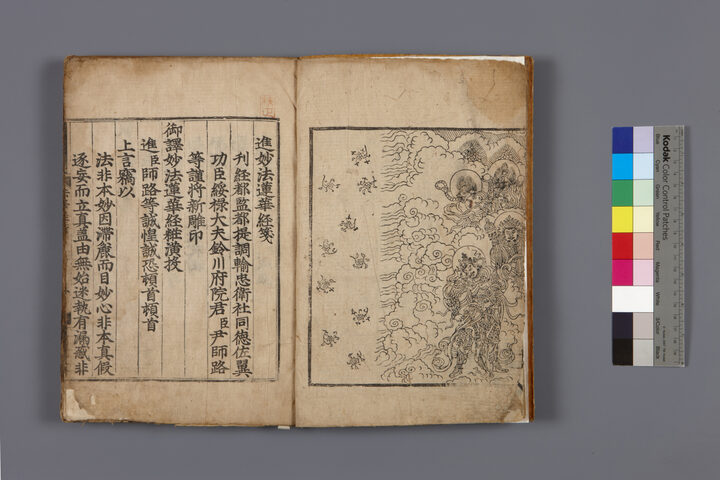 進妙法蓮華經箋
刊經都監都提調輸忠衛社同德佐翼
功臣綏祿大夫鈴川府院君臣尹師路
等謹將新雕印
御譯妙法蓮華經粧潢投
進臣師路等誠惶誠恐頓首頓首
上言竊以
法非本妙因滯麁而目妙心非本真假
逐妄而立真盖由無始迷執有漏蔵非
Kodak
Color Control Patches
Blue
Cyan
Green
Yellow
Red
Magenta
White
3/Color
Black